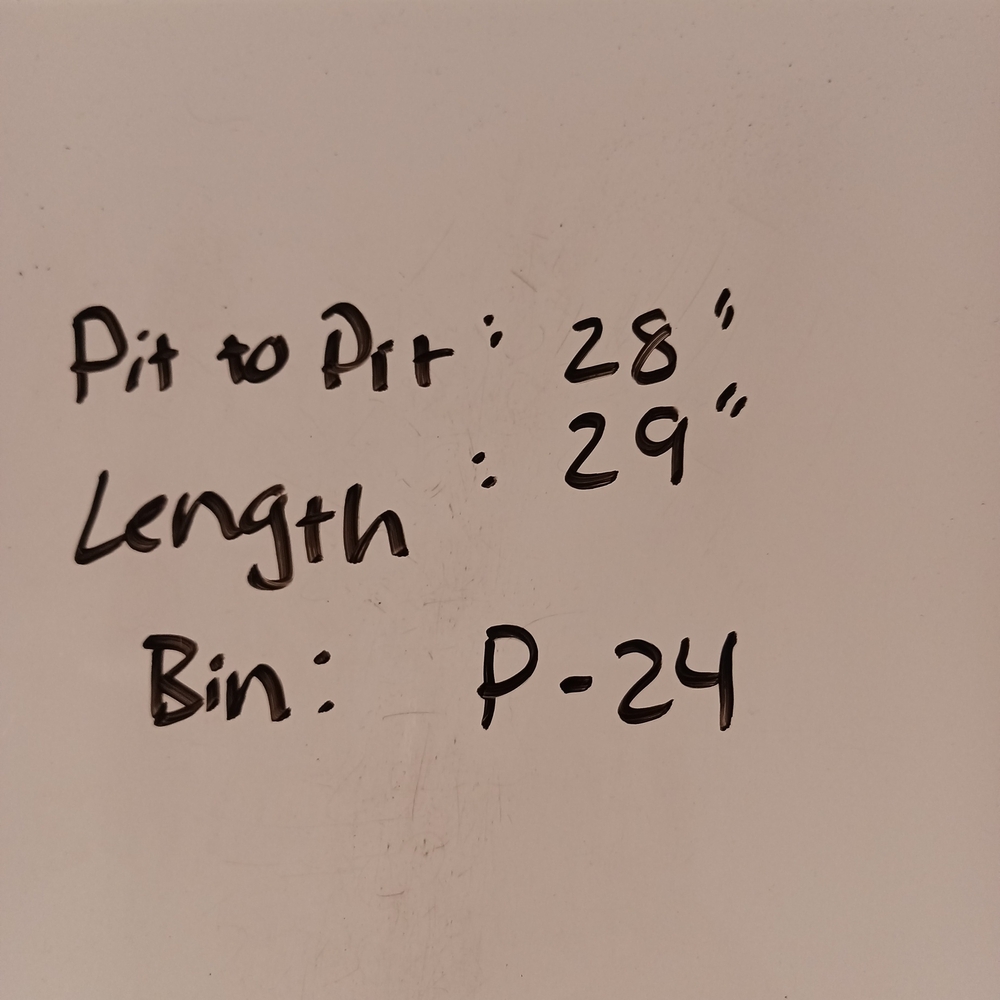 Pit to Pit : 28"
Length : 29"
Bin: P-24